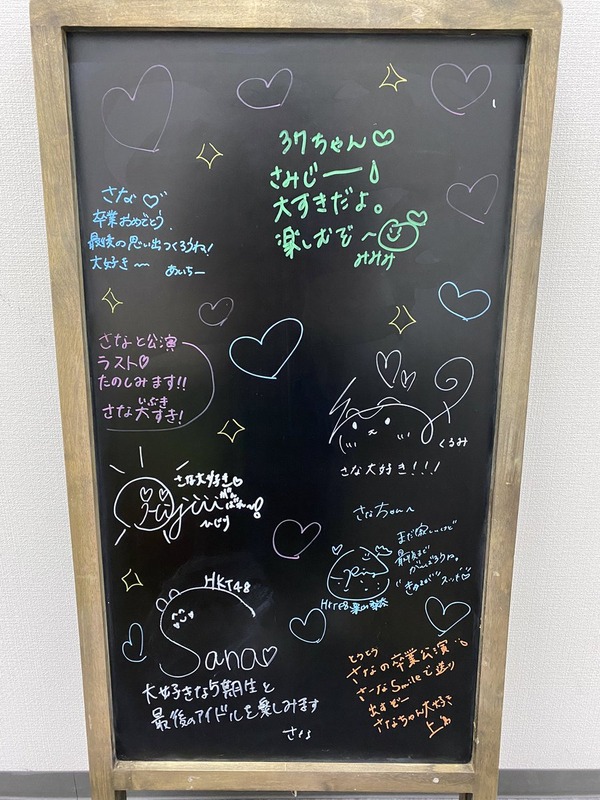 37ちゃん♡
さみじー!
大すきだよ。
楽しむぞ〜
みみみ
さな♡
卒業おめでとう.
最後の思い出つくろうね!
大好き〜 あいちー
さなと公演
ラスト♡
たのしみます!!
いぶき
さな大すき!
くるみ
さな大好き!!!
さな大好き♡
がんばれ〜!
ひじり
さなちゃん〜
まだ寂しいけど
最後まで
がんばろうね。
HKT48
Sana♡
大好きな5期生と
最後のアイドルを楽しみます
とうとう
さなの卒業公演
さーなSmileで送り
出すぞー
さなちゃん大好き